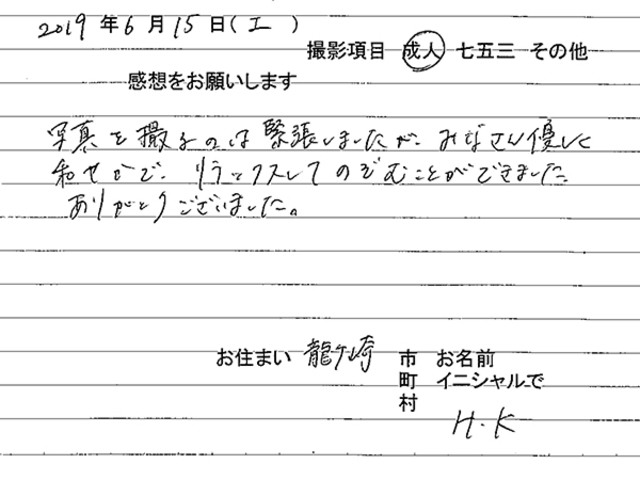 2019年6月15日(土)
撮影項目 成人 七五三 その他
感想をお願いします
写真を撮るのは緊張しましたが、みなさん優しく
和やかで、リラックスしてのぞむことができました。
ありがとうございました。
お住まい 龍ケ崎 市 お名前
町 イニシャルで
村
H.K